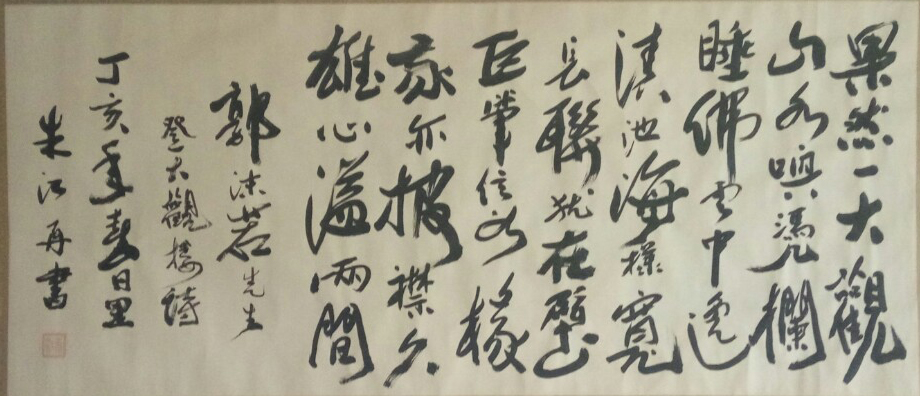 果然一大觀
山水唤凭欄
睡佛雲中逸
滇池海樣寬
長聯猶在壁
巨筆信如椽
我亦披襟久
雄心溢兩間
郭沫若先生
登大觀樓詩
丁亥年春日里
朱江再書